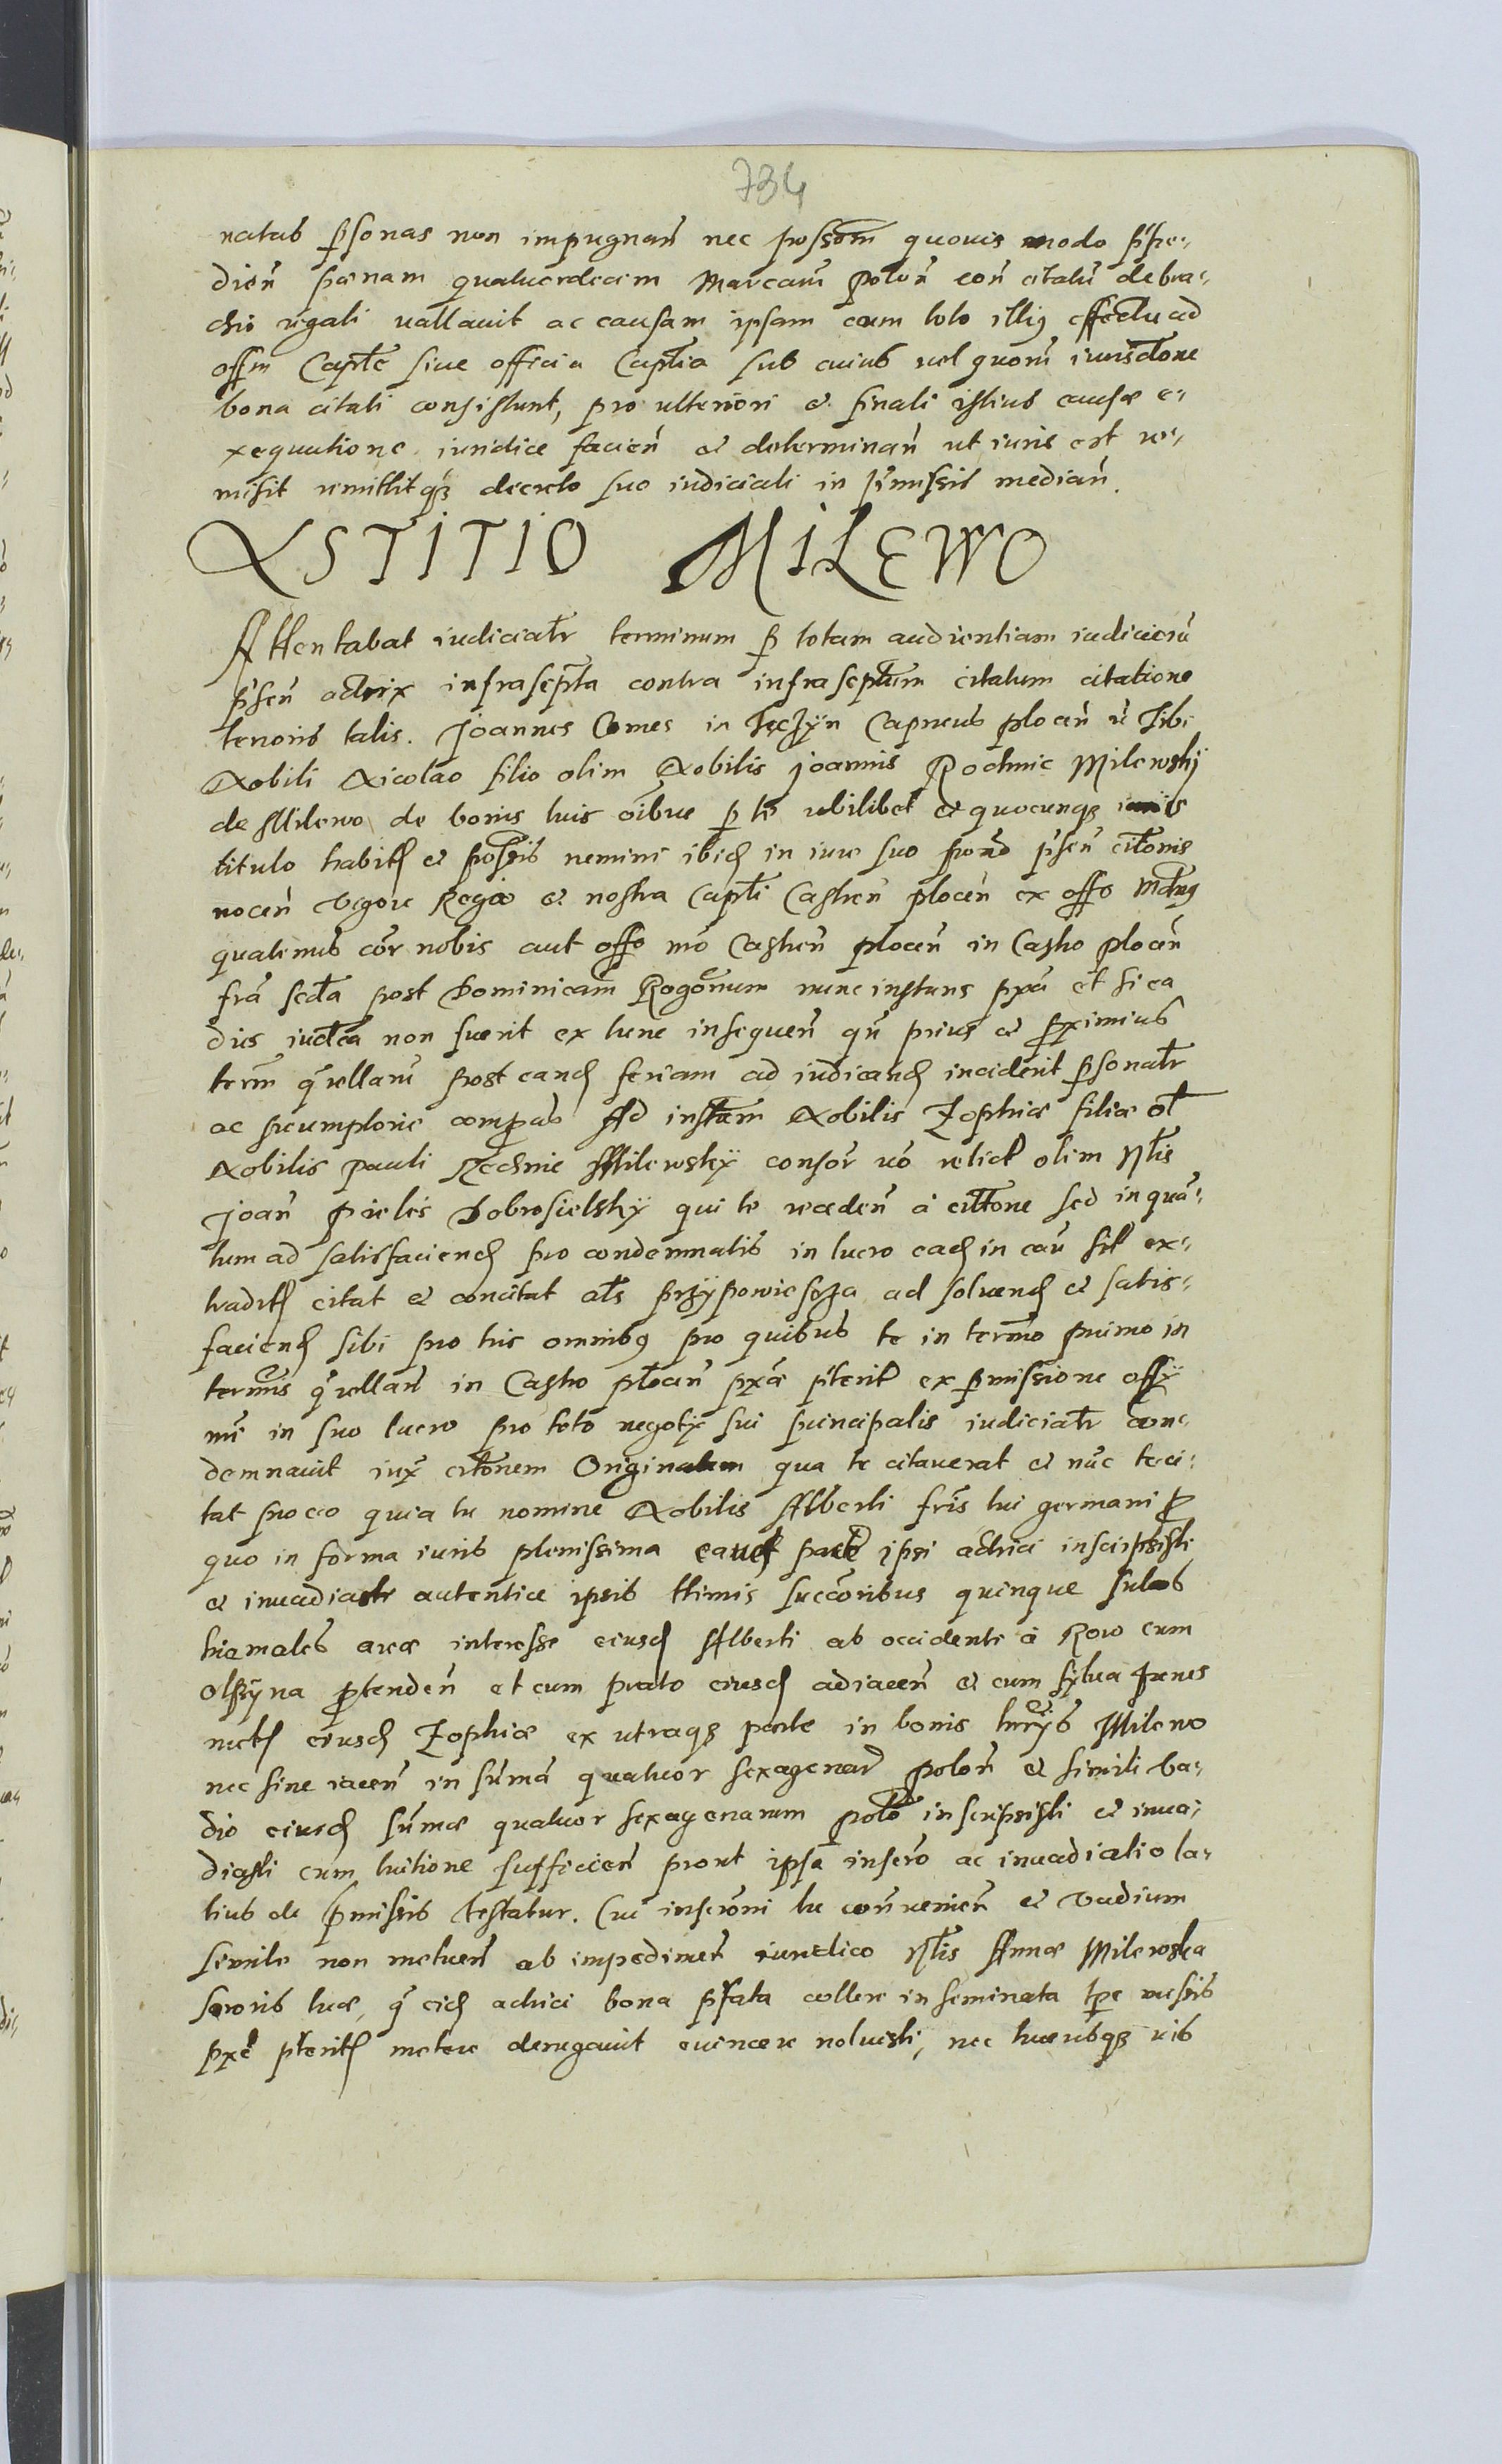 734
natas p̱sonas non impugnań nec possom̄ quovis modo p̄pe-
dień pœnam quatuordecim Marcarū polon̄ con̄ citatū de bra-
chio regali vallavit ac causam ipsam cum toto illig effectu ad
offm Captle sive officia Captlia sub cuius vel quorū iurisdtōne
bona citati consistunt, pro ulteriori & finali istius causæ e-
xequutione iuridice facień & determinań ut iuris est re-
misit remittitqз decreto suo iudiciali in p̄missis median̄.
XSTITIO MILEWO
Attentabat iudicialr terminum p̱ totam audientiam iudiciorū
p̄sen̄ actrix infrascrpta contra infrascptum citatum citatione
tenoris talis. Joannes Comes in Teczÿn Capneus plocen̄ Tibi
Nobili Nicolao filio olim Nobilis Joannis Rochnie Milewskÿ
de Milewo de bonis tuis oībus p̱ te ubilibet & quocunqз iuris
titulo habitȝ & possis nemini ibidȝ in iure suo p̄sen̄ citōnis
nocen̄ vigore Regia & nostra Captli Castren̄ plocen̄ ex offo Mdng
quatenus cor̄ nobis aut offo nr̄o Castren̄ plocen̄ in Castro plocen̄
fr̄a secda post Dominicam Rogōnum nunc instans pxa et si ea
dies iudcta non fuerit ex tunc in sequen̄ qn̄ prius & p̱ximius
term̄ q̄rellarū post eandȝ feriam ad iudicandȝ inciderit p̱sonalr
ac p̱eumptorie compareas Ad instam Nobilis Zophiæ filiæ ol
Nobilis Pauli Rochnie Milewskÿ consor̄ vō relict olim Nlis
Joan̄ Pieles Dobrosielskÿ qui te receden̄ a citōne sed in quā-
tum ad satisfaciendȝ pro condemnatis in lucro eadȝ in cau sit ex-
traditȝ citat & concitat als przÿpowiescza ad solvendȝ & satis-
faciendȝ sibi pro his omnibg pro quibus te in termo primo in
terminis q̄rellarū in Castro plocen̄ pxa p̄terit ex p̱missione offÿ
nr̄i in suo lucro pro toto negotÿ sui principalis iudicialr con-
demnavit iux citōnem Originalem qua te citaverat & nūc te ci-
tat pro eo quia tu nomine Nobilis Alberti fris tui germani p̱
quo in forma iuris plenissima cavedȝ parte ipsi actrici inscripsisti
& invadiasti autentice ipsis ltimis succōribus quinque sulcos
hiemales areæ interesse eiusdȝ Alberti ab occidenti a Row cum
Olszÿna p̱tenden̄ et cum prato eiusdȝ adiacen̄ & cum sylva penes
metȝ eiusdȝ Zophiæ ex utraqз parte in bonis hrÿs Milewo
nec sine iacen̄ in sum̄a quatuor sexagenar polon̄ & simili va-
dio eiusdȝ sum̄æ quatuor sexagenarum polo inscripsisti & inva-
diasti cum tuitione sufficien̄ prout ipsa inscrō ac invadiatio la-
tius de p̄missis testatur. Cui inscrōni tu con̄venien̄ & vadium
simile non metuen̄ ab impedimen̄ iuridico Nlis Annæ Milewska
sororis tuæ, q̄ eidȝ actrici bona pfata collere inseminata tpe messis
pxe pteritȝ metere denegavit evincere noluisti, nec tuerisqз vis